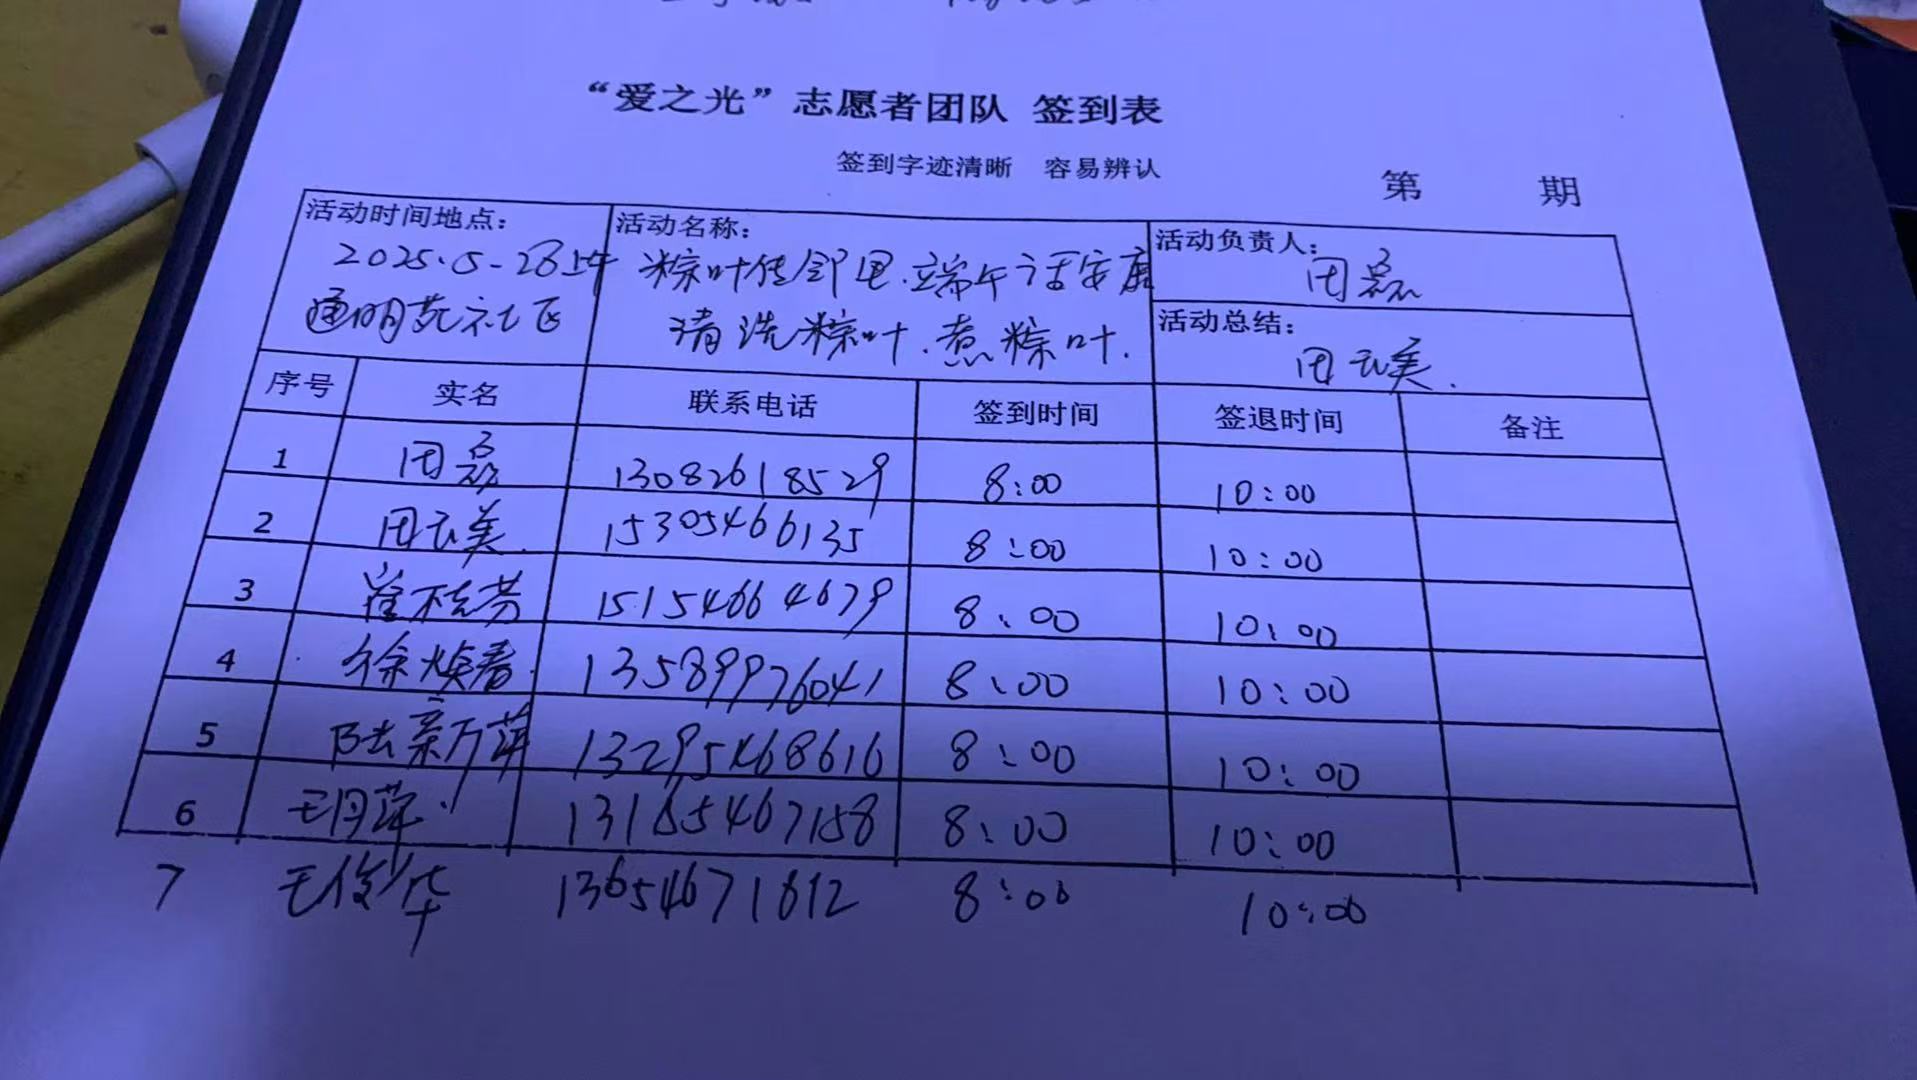 “爱之光”志愿者团队 签到表
签到字迹清晰 容易辨认
第 期
活动时间地点: 活动名称: 活动负责人:
2025.5-28上午 粽叶传邻里.端午话安康 田磊
通明苑社区 清洗粽叶.煮粽叶. 活动总结:
田云美.
序号 实名 联系电话 签到时间 签退时间 备注
1 田磊 13082618529 8:00 10:00
2 田云美. 15305466135 8:00 10:00
3 崔桂芳 15154664679 8:00 10:00
4 徐焕春. 13589976041 8:00 10:00
5 13295468616 8:00 10:00
6 王月萍. 13165467158 8:00 10:00
7 王俊华 13654671612 8:00 10:00